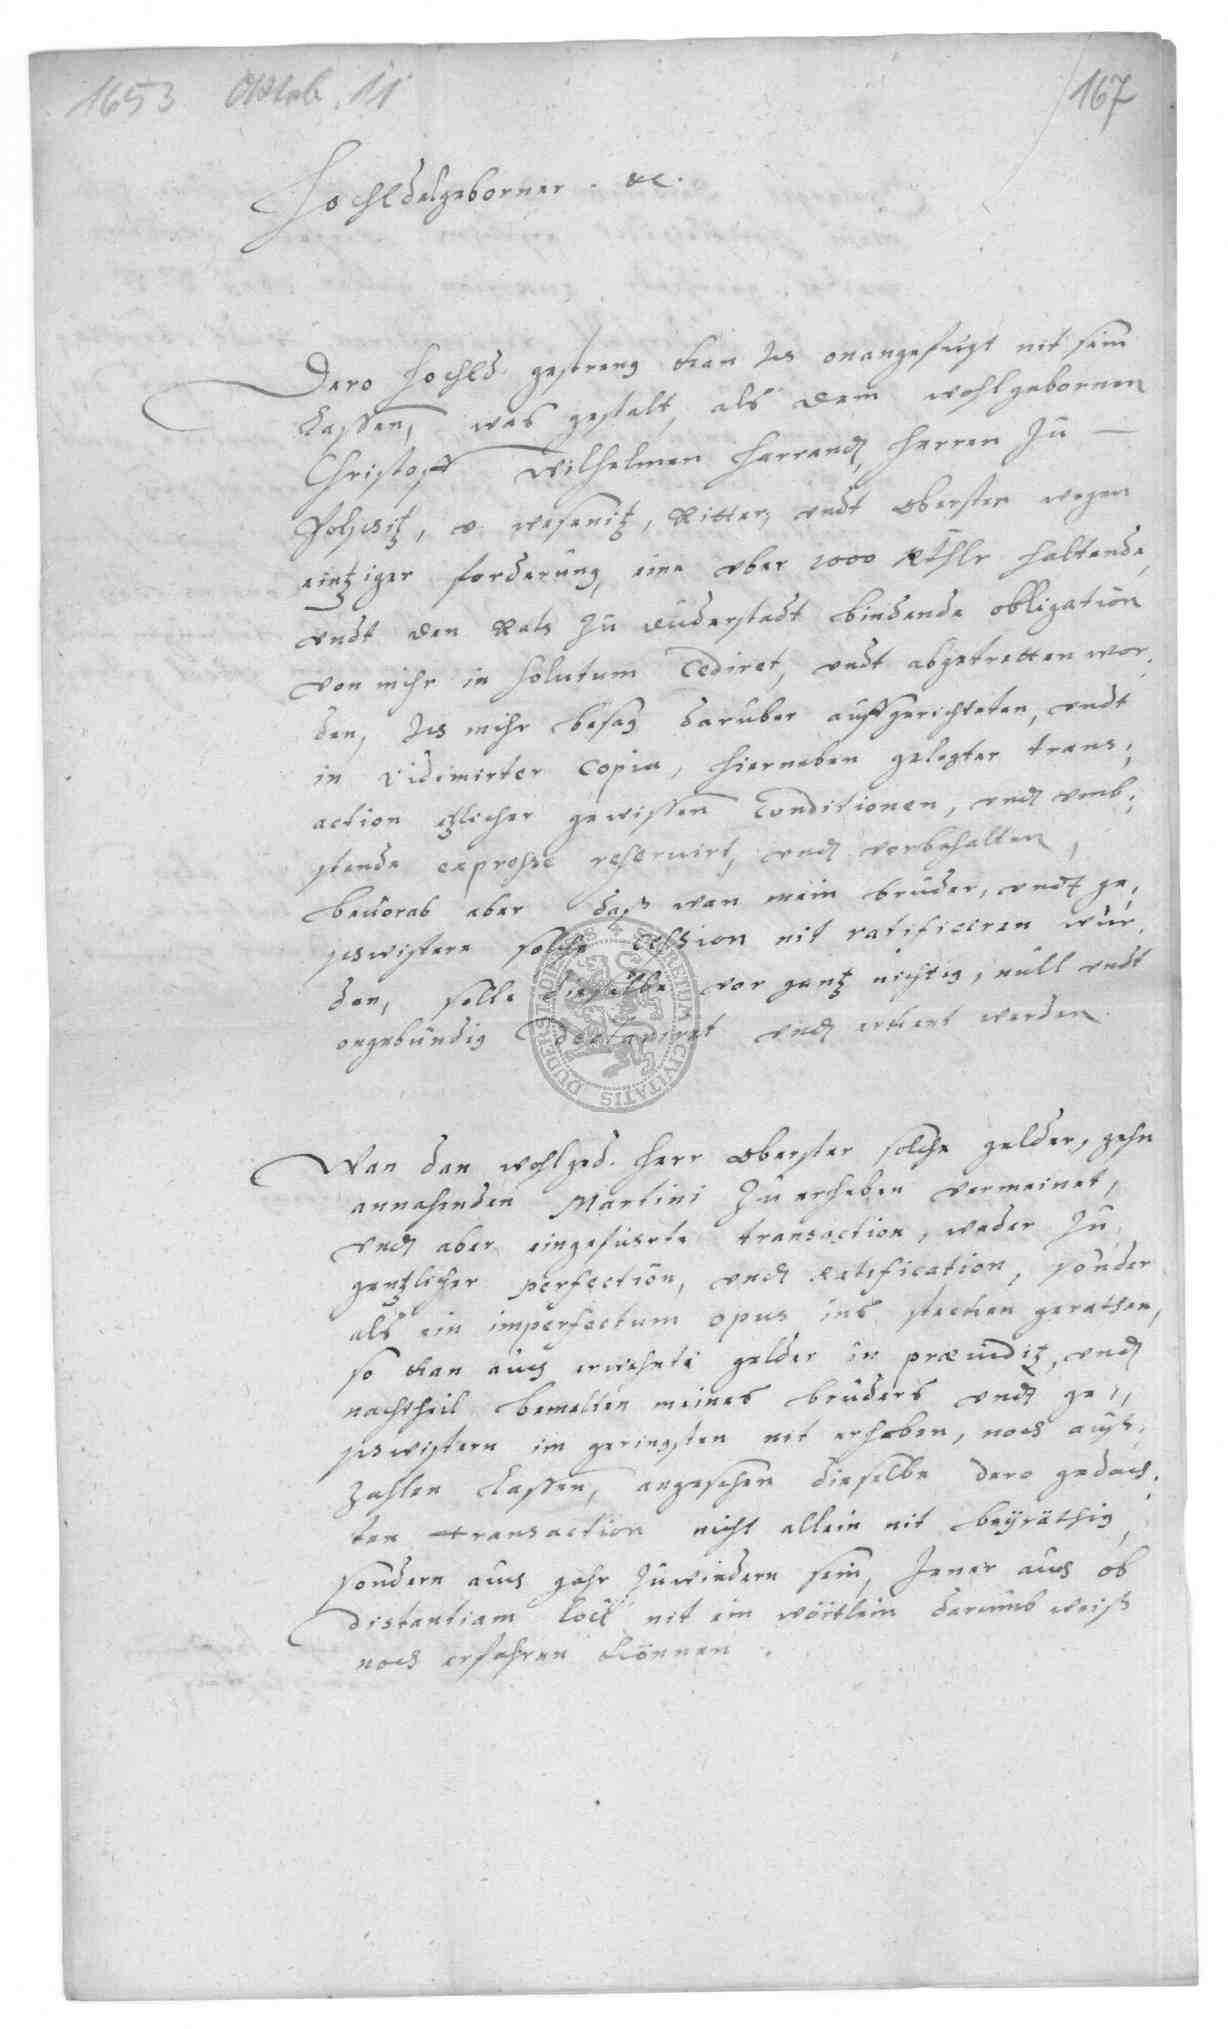 1653 Oktob. 11
167
HochEdelgeborner. &c.
Dero HochEd. gestreng kan Ich onangefugt nit sein
Lassen, was gestalt, als dem wohlgebornen
Christoff Wilhelmen Harrandt, Herren zu
Polschitz, v. wesenitz, Ritter, vndt Obersten wegen
eintziger forderung, eine vber 2000 Rthlr haltende,
vndt den Rats zu Duderstadt bindende obligation
von mihr in solutum Cediret, vndt abgetretten wor,
den, Ich mihr besag daruber auffgerichteten, vndt
in Vidimirter Copia, hierneben gelegter trans,
action etzlicher gewissen Conditionen, undt vmb,
stende expresse reservirt, undt vorbehalten,
beuorab aber daß wan mein bruder, undt ge,
schwistere solche Cession nit ratificiren wur,
den, solle dieselbe vor gantz nichtig, null vndt
ongebundig Declariret undt erkent werden.
Wan dan wohlged. Herr Oberster solche gelder, gehn
annahenden Martini zu erheben vermeinet,
undt aber eingefuhrte transaction, weder zu
gentzlicher perfection, undt Ratification, sonder
als ein imperfectum opus ins stecken gerathen,
so kan auch erwehnte gelder in praeiuditz, undt
nachtheil bemelten meines bruders undt ge,
schwistern im geringsten nit erheben, noch auß,
zahlen Lassen, angesehen dieselbe dero gedach,
ten transaction nicht allein nit beyräthig,
sondern auch gahr zuwiedern sein, Jener auch ob
distantiam Loci nit ein wörtlein darumb weiß
noch erfahren können.
DUDERSTADIENSIS SECRETUM CIVITATIS